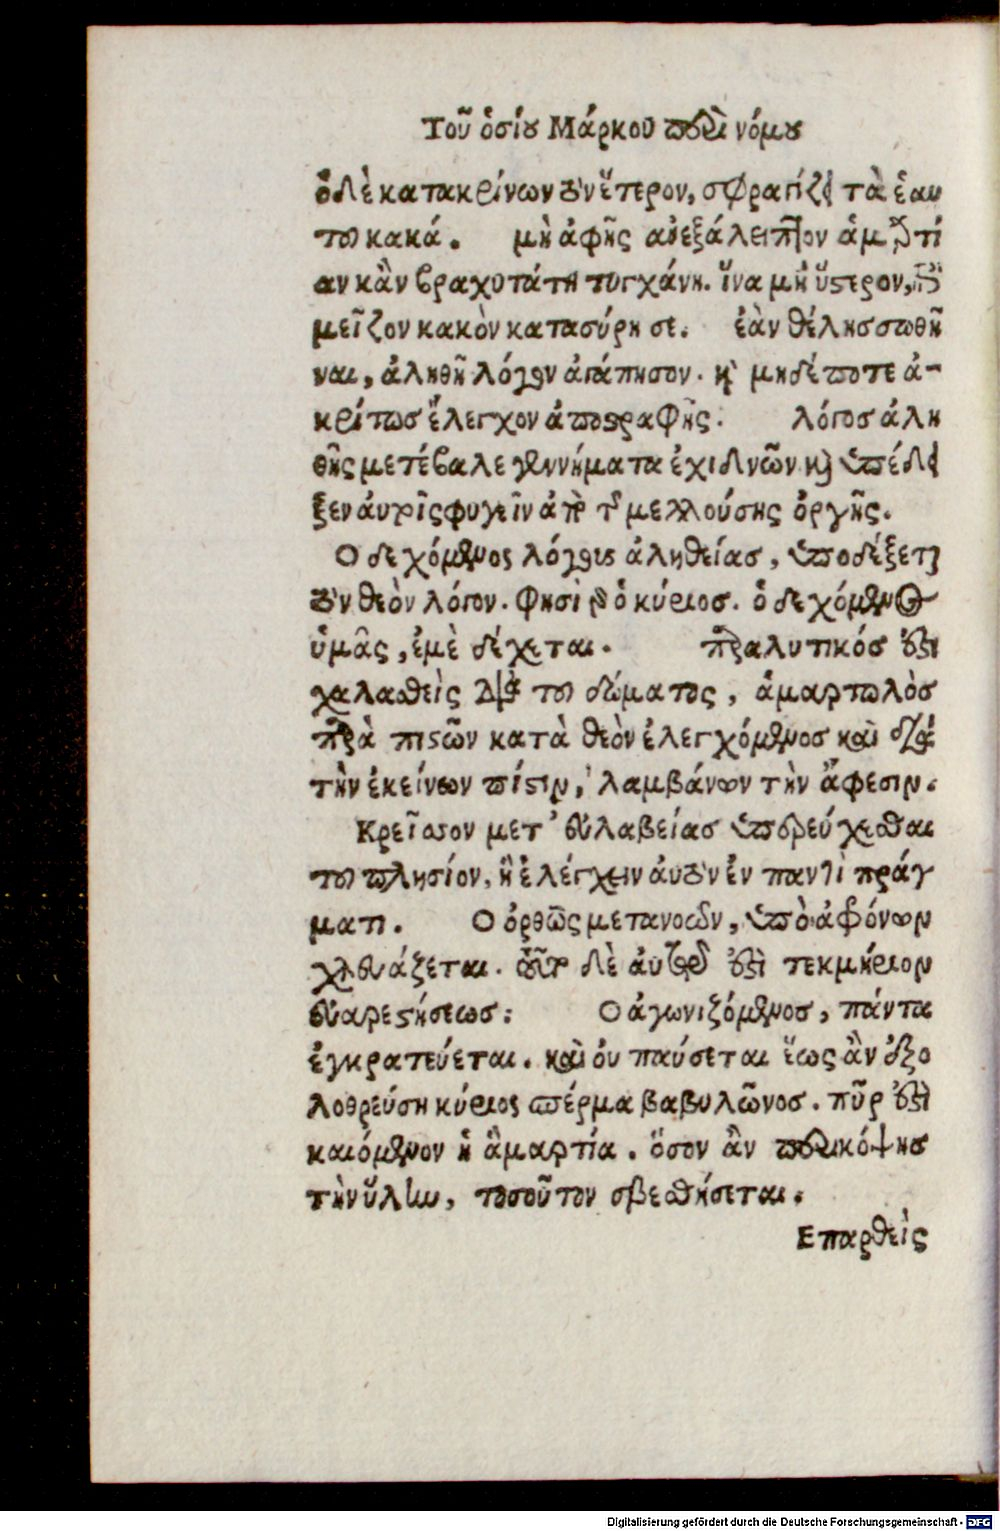 Τοῦ ὁσίου Μάρκου περὶ νόμου
ὁ δὲ κατακρίνων τὸν ἕτερον, σφραγίζει τὰ ἑαυ
τοῦ κακά. μὴ ἀφῇς ἀνεξάλειπτον ἁμαρτί
αν κἂν βραχυτάτη τυγχάνη. ἵνα μὴ ὕστερον,
μεῖζον κακὸν κατασύρη σε. ἐὰν θέλησ σωθῆ
ναι, ἀληθῆ λόγον ἀγάπησον. καὶ μηδέποτε ἀ-
κρίτως ἔλεγχον ἀποστραφῇς. λόγος ἀλη
θὴς μετέβαλε γεννήματα ἐχιδνῶν καὶ ὑπέδει
ξεν ἀυτοῖς φυγεῖν ἀπὸ τῆς μελλούσης ὀργῆς.
Ο δεχόμενος λόγους ἀληθείας, ὑποδέξεται
τὸν θεὸν λόγον. φησὶ γὰρ ὁ κύριος. ὁ δεχόμενος
ὑμᾶς, ἐμὲ δέχεται. παραλυτικός ἐστι
χαλασθεὶς διὰ τοῦ δώματος, ἁμαρτωλὸσ
παρὰ πιστῶν κατὰ θεὸν ἐλεγχόμενος καὶ διὰ
τὴν ἐκείνων πίστιν, λαμβάνων τὴν ἄφεσιν.
Κρεῖσσον μετ' ἐυλαβείασ ὑπερεύχεσθαι
τοῦ πλησίον, ἢ ἐλέγχειν ἀυτὸν ἐν παντὶ πράγ
ματι. Ο ὀρθῶς μετανοῶν, ὑπὸ ἀφρόνων
χλευάζεται. τοῦτο δὲ ἀυτῷ ἐστὶ τεκμήριον
ἐυαρεστήσεωσ: Ο ἀγωνιζόμενος, πάντα
ἐγκρατεύεται. καὶ ὀυ παύσεται ἕως ἂν ἐξο
λοθρεύση κύριος σπέρμα βαβυλῶνοσ. πῦρ ἐστὶ
καιόμενον ἡ ἁμαρτία. ὅσον ἂν περικόψησ
τὴν ὕλην, τοσοῦτον σβεσθήσεται.
Επαρθεὶς
Digitalisierung gefördert durch die Deutsche Forschungsgemeinschaft - DFG